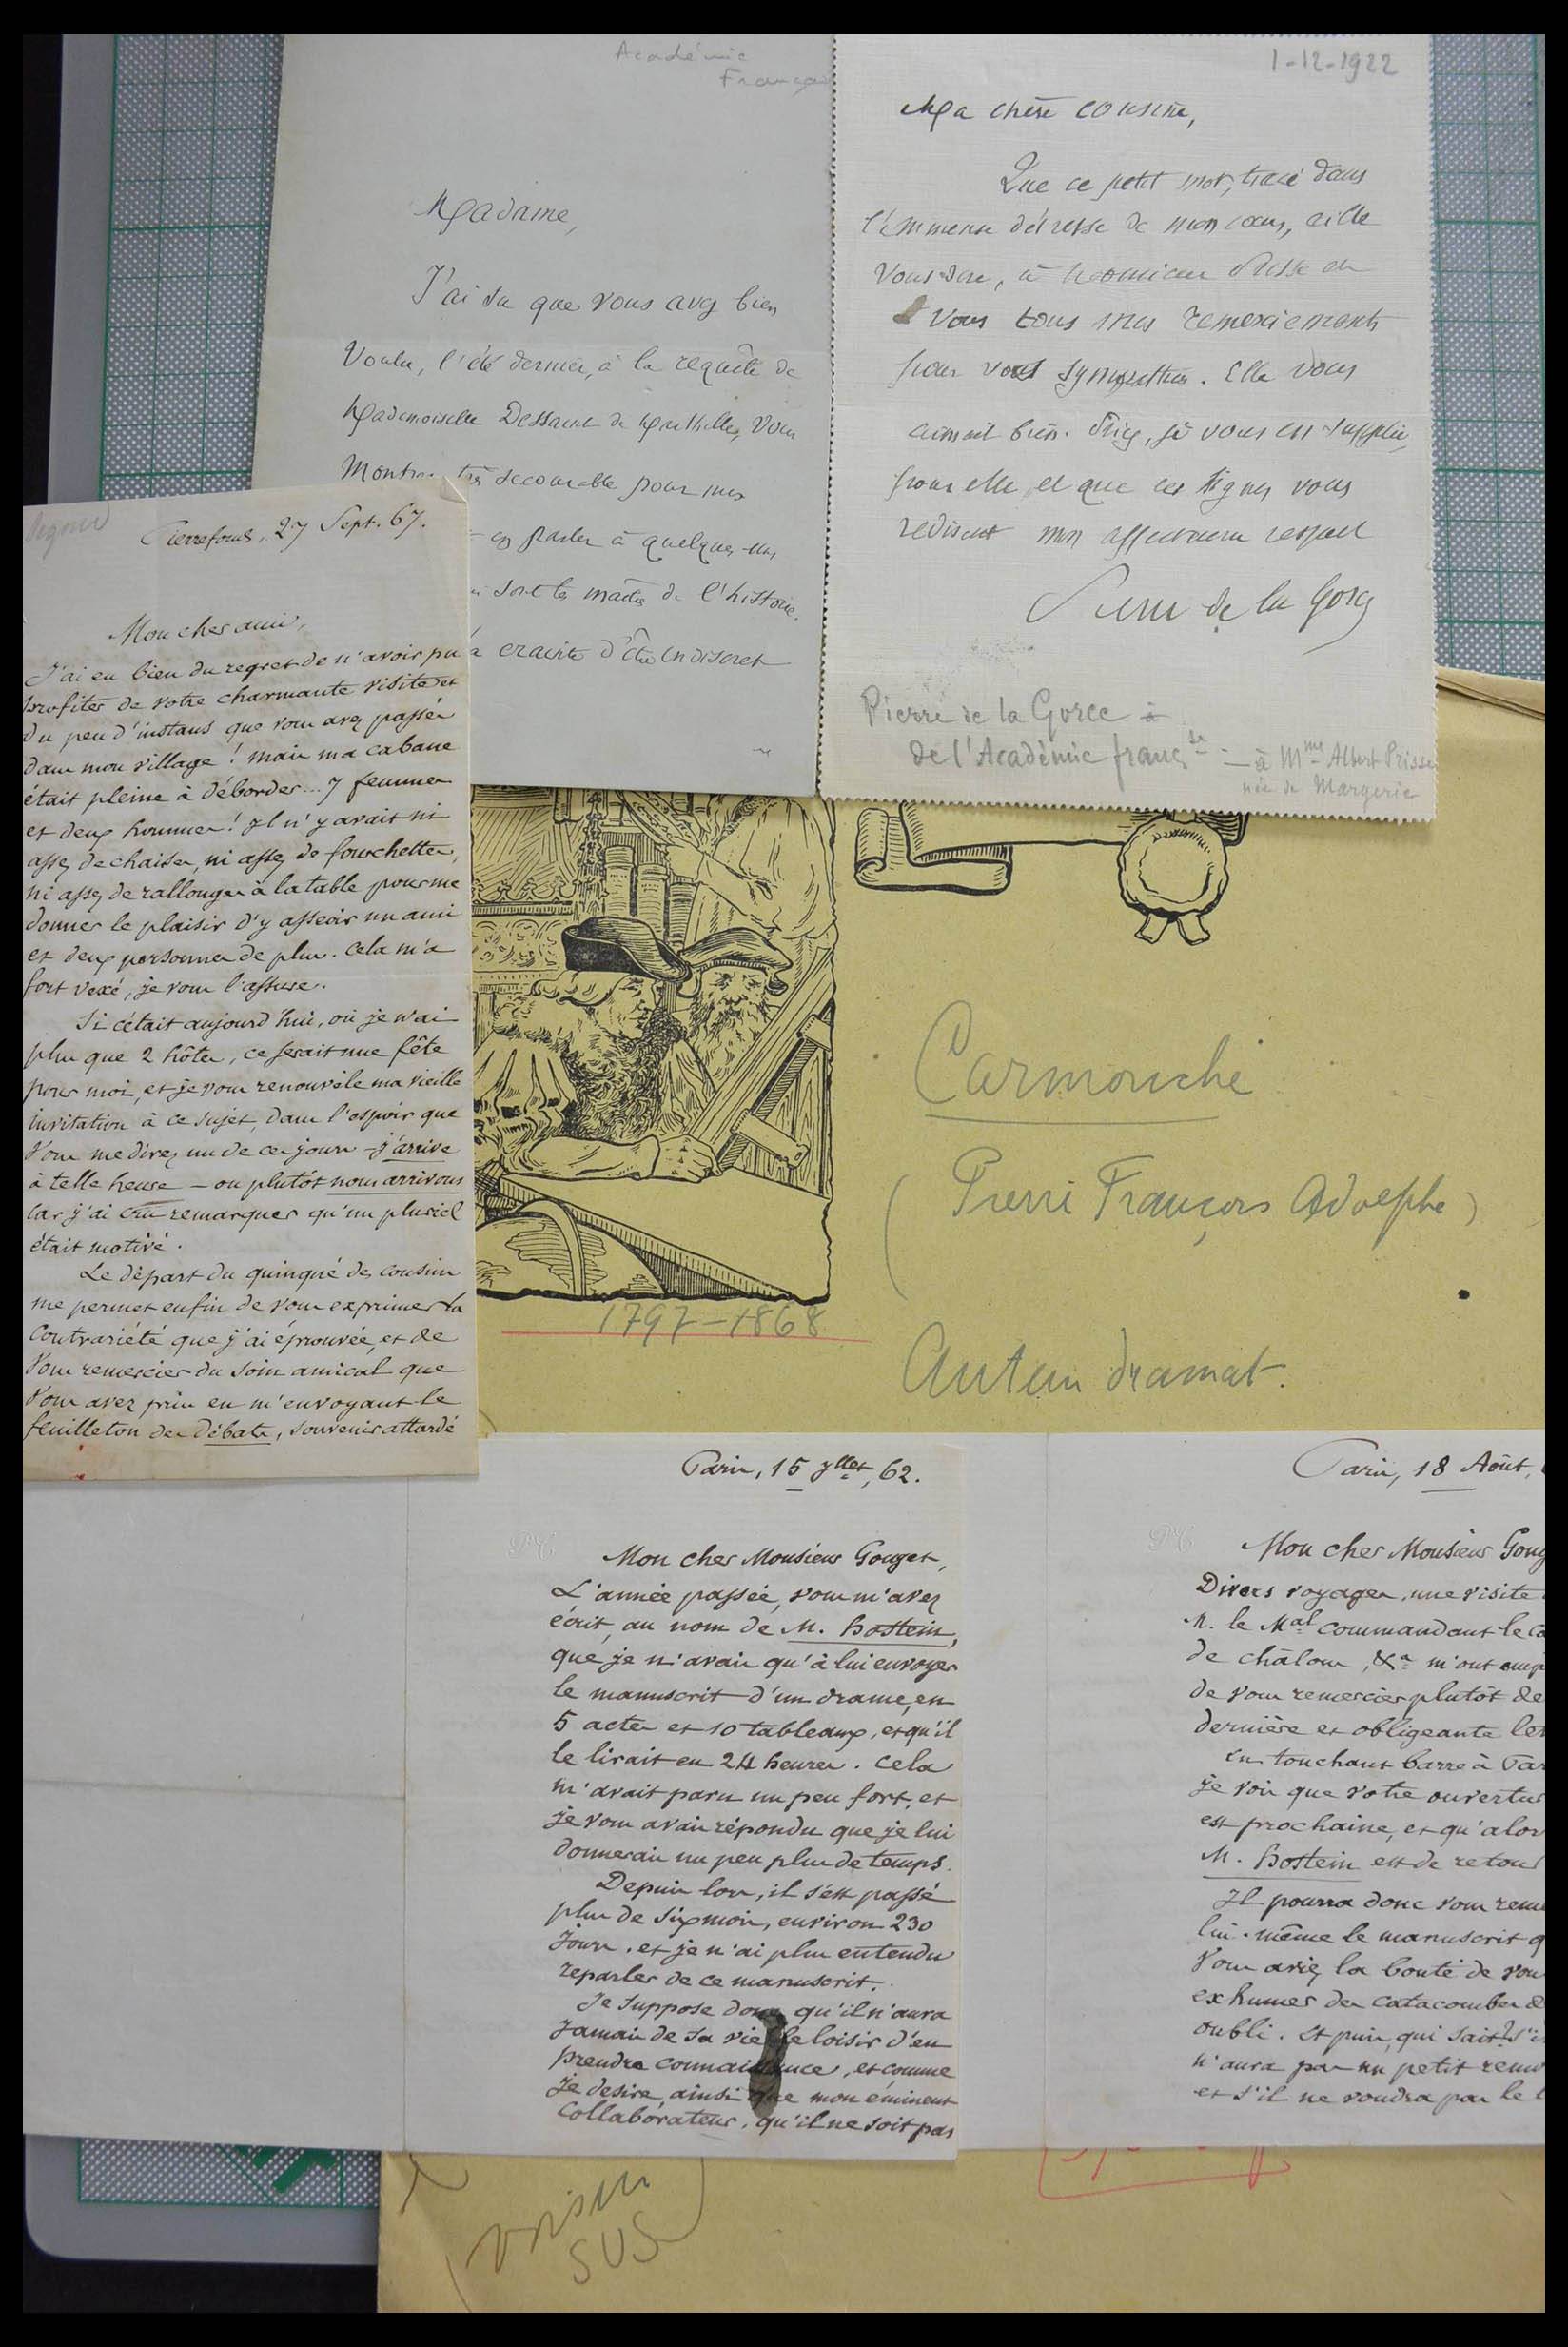 Académie
Français
Madame,
J'ai su que vous avez bien
voulu, l'été dernier, à la requête de
Mademoiselle Dessaint de Marthille, vous
montrer très secourable pour mes
en parler à quelques-uns
sont les maîtres de l'histoire.
crainte d'être indiscret
1-12-1922
Ma chère cousine,
Que ce petit mot, tracé dans
l'immense détresse de mon cœur, aille
vous dire, à Monsieur Prisse et
à vous tous mes remerciements
pour votre sympathie. Elle vous
aimait bien. Priez, je vous en supplie,
pour elle, et que ces lignes vous
redisent mon affectueux respect
Pierre de la Gorce
Pierre de la Gorce à
de l'Académie franç se — à Mme Albert Prisse
née de Margerie
Pierrefonds, 27 Sept. 67.
Mon cher ami,
J'ai eu bien du regret de n'avoir pu
profiter de votre charmante visite et
du peu d'instans que vous avez passés
dans mon village ! mais ma cabane
était pleine à déborder... 7 femmes
et deux hommes ! Il n'y avait ni
assez de chaises, ni assez de fourchettes,
ni assez de rallonges à la table pour me
donner le plaisir d'y asseoir un ami
et deux personnes de plus. Cela m'a
fort vexé, je vous l'assure.
Si c'était aujourd'hui, où je n'ai
plus que 2 hôtes, ce serait une fête
pour moi, et je vous renouvèle ma vieille
invitation à ce sujet, dans l'espoir que
vous me direz un de ces jours — j'arrive
à telle heure — ou plutôt nous arrivons
car j'ai cru remarquer qu'un pluriel
était motivé.
Le départ du quinqué des cousins
me permet enfin de vous exprimer la
contrariété que j'ai éprouvée, et de
vous remercier du soin amical que
vous avez pris en m'envoyant le
feuilleton des Débats, souvenir attardé
Carmouche
(Pierre François Adolphe)
1797-1868
Auteur dramat.
Paris, 15 jllet, 62.
Mon cher Monsieur Gouget,
L'année passée, vous m'avez
écrit, au nom de M. Hostein,
que je n'avais qu'à lui envoyer
le manuscrit d'un drame, en
5 actes et 10 tableaux, et qu'il
le lirait en 24 heures. Cela
m'avait paru un peu fort, et
je vous avais répondu que je lui
donnerais un peu plus de temps.
Depuis lors, il s'est passé
plus de six mois, environ 230
jours, et je n'ai plus entendu
reparler de ce manuscrit.
Je suppose donc qu'il n'aura
jamais de sa vie le loisir d'en
prendre connaissance, et comme
je desire, ainsi que mon éminent
collaborateur, qu'il ne soit pas
Paris, 18 Août,
Mon cher Monsieur Goug
Divers voyages, une visite
M. le Mal commandant le ca
de châlons, &a m'ont emp
de vous remercier plutôt de
dernière et obligeante let
En touchant barre à Par
je vois que votre ouvertur
est prochaine, et qu'alor
M. Hostein est de retour
Il pourra donc vous reme
lui-même le manuscrit q
vous aviez la bonté de vou
exhumer des catacombes de
oubli. Et puis, qui sait? s'i
n'aura pas un petit remo
et s'il ne voudra pas le l
SUS